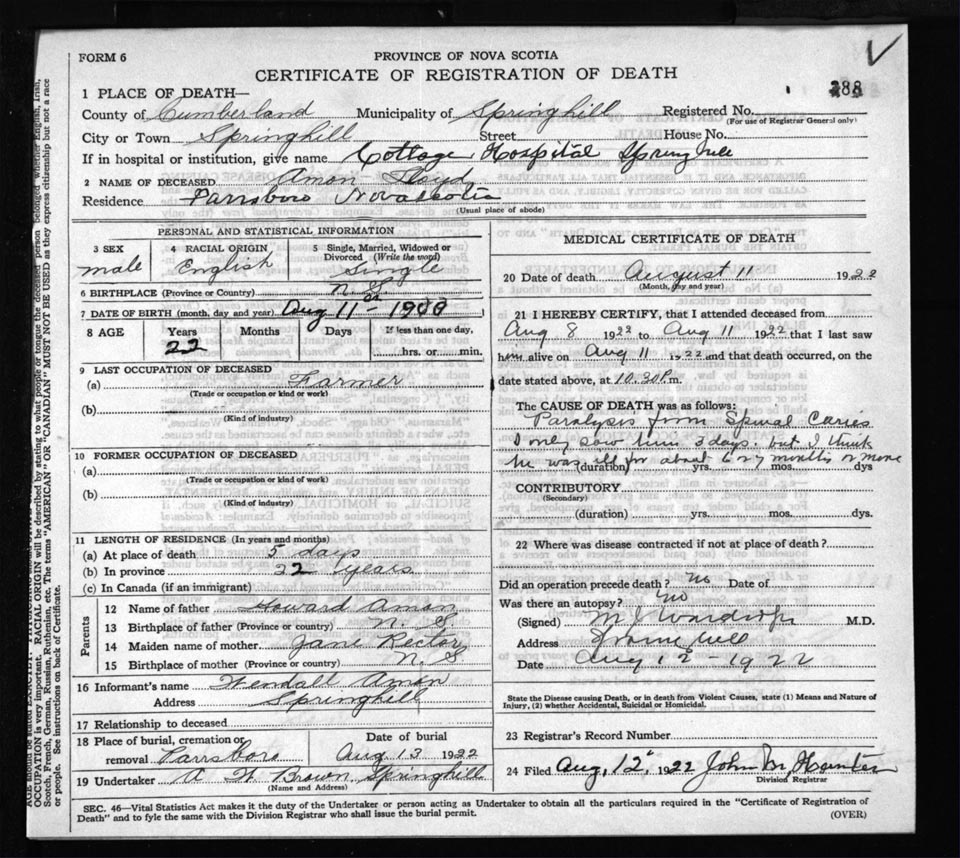 FORM 6
PROVINCE OF NOVA SCOTIA
CERTIFICATE OF REGISTRATION OF DEATH
388
1 PLACE OF DEATH—
County of Cumberland Municipality of Springhill Registered No.
(For use of Registrar General only)
City or Town Springhill Street House No.
If in hospital or institution, give name Cottage Hospital Springhill
2 NAME OF DECEASED Amon Lloyd
Residence Parrsboro Nova Scotia
(Usual place of abode)
PERSONAL AND STATISTICAL INFORMATION
3 SEX male
4 RACIAL ORIGIN English
5 Single, Married, Widowed or Divorced (Write the word) Single
6 BIRTHPLACE (Province or Country) N.S.
7 DATE OF BIRTH (month, day and year) Aug 11 - 1900
8 AGE Years Months Days If less than one day,
22 hrs. or min.
9 LAST OCCUPATION OF DECEASED
(a) Farmer
(Trade or occupation or kind or work)
(b)
(Kind of industry)
10 FORMER OCCUPATION OF DECEASED
(a)
(Trade or occupation or kind or work)
(b)
(Kind of industry)
11 LENGTH OF RESIDENCE (In years and months)
(a) At place of death 5 days
(b) In province 22 years
(c) In Canada (if an immigrant)
Parents
12 Name of father Howard Amon
13 Birthplace of father (Province or country) N. S.
14 Maiden name of mother Jane Rector
15 Birthplace of mother (Province or country) N. S
16 Informant's name Wendall Amon
Address Springhill
17 Relationship to deceased
18 Place of burial, cremation or removal Parrsboro
Date of burial Aug 13 1922
19 Undertaker A W Brown, Springhill
(Name and Address)
MEDICAL CERTIFICATE OF DEATH
20 Date of death August 11 1922
(Month, day and year)
21 I HEREBY CERTIFY, that I attended deceased from
Aug 8 1922 to Aug 11 1922 that I last saw
him alive on Aug 11 1922 and that death occurred, on the
date stated above, at 10.30 P.m.
The CAUSE OF DEATH was as follows:
Paralysis from Spinal Caries
I only saw him 3 days. but I think
he was ill for about 6 or 7 months or more
(duration) yrs. mos. dys
CONTRIBUTORY
(Secondary)
(duration) yrs. mos. dys.
22 Where was disease contracted if not at place of death?
Did an operation precede death? no Date of
Was there an autopsy? no
(Signed) M.D.
Address Springhill
Date Aug 12 - 1922
State the Disease causing Death, or in death from Violent Causes, state (1) Means and Nature of
Injury, (2) whether Accidental, Suicidal or Homicidal.
23 Registrar's Record Number
24 Filed Aug, 12, 1922 John M. Hunter
Division Registrar
SEC. 46—Vital Statistics Act makes it the duty of the Undertaker or person acting as Undertaker to obtain all the particulars required in the "Certificate of Registration of
Death" and to fyle the same with the Division Registrar who shall issue the burial permit.
(OVER)
OCCUPATION is very important. RACIAL ORIGIN will be described by stating to what people or tongue the deceased person belonged whether English, Irish,
Scotch, French, German, Russian, Ruthenian, etc. The terms "AMERICAN" OR "CANADIAN" MUST NOT BE USED as they express citizenship but not a race
or people. See instructions on back of Certificate.